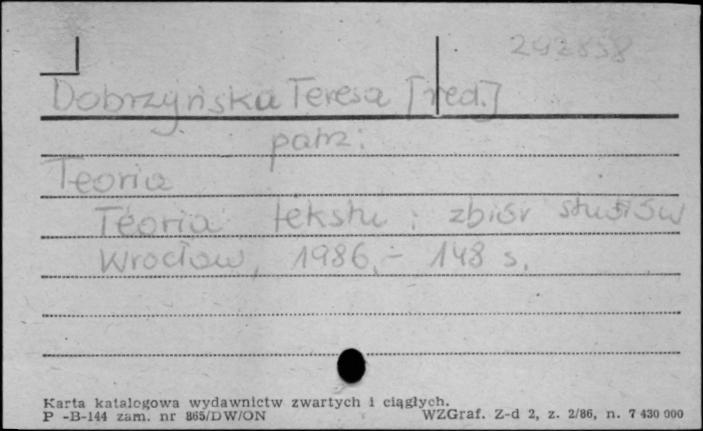 242858
Dobrzyńska Teresa [red.]
patrz:
Teoria
Teoria tekstu : zbiór studiów
Wrocław, 1986.- 148 s.
Karta katalogowa wydawnictw zwartych i ciągłych.
P -B-144 zam. nr 865/DW/ON WZGraf. Z-d 2, z. 2/86, n. 7 430 000